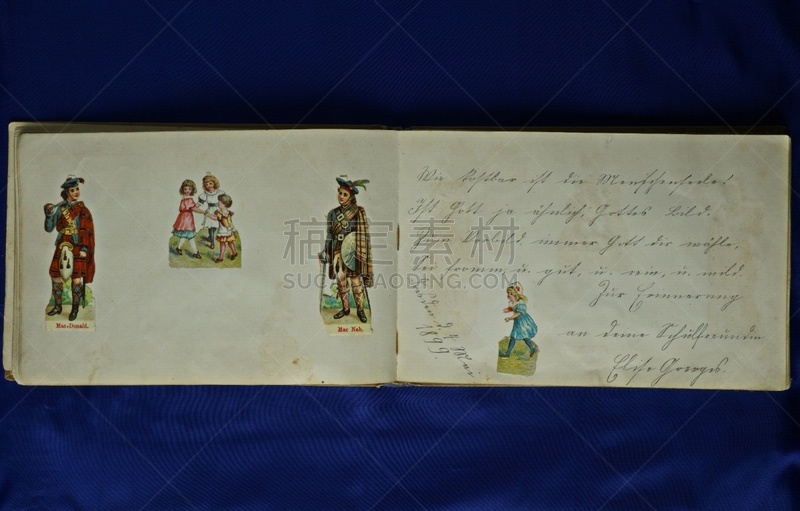 Mac-Donald.
Mac Nab.
Wie kostbar ist die Menschenseele!
Ist Gott ja ähnlich, Gottes Bild.
Zum Vorbild immer Gott dir wähle,
Sei fromm u. gut, u. rein, u. mild.
Zur Erinnerung
an deine Schulfreundin
Elise Goerges.
d. 4. Mai
1899.
稿定素材
SUCAI.GAODING.COM